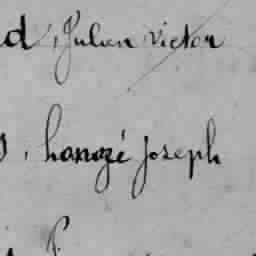 d, Julien victor
s, honozé joseph